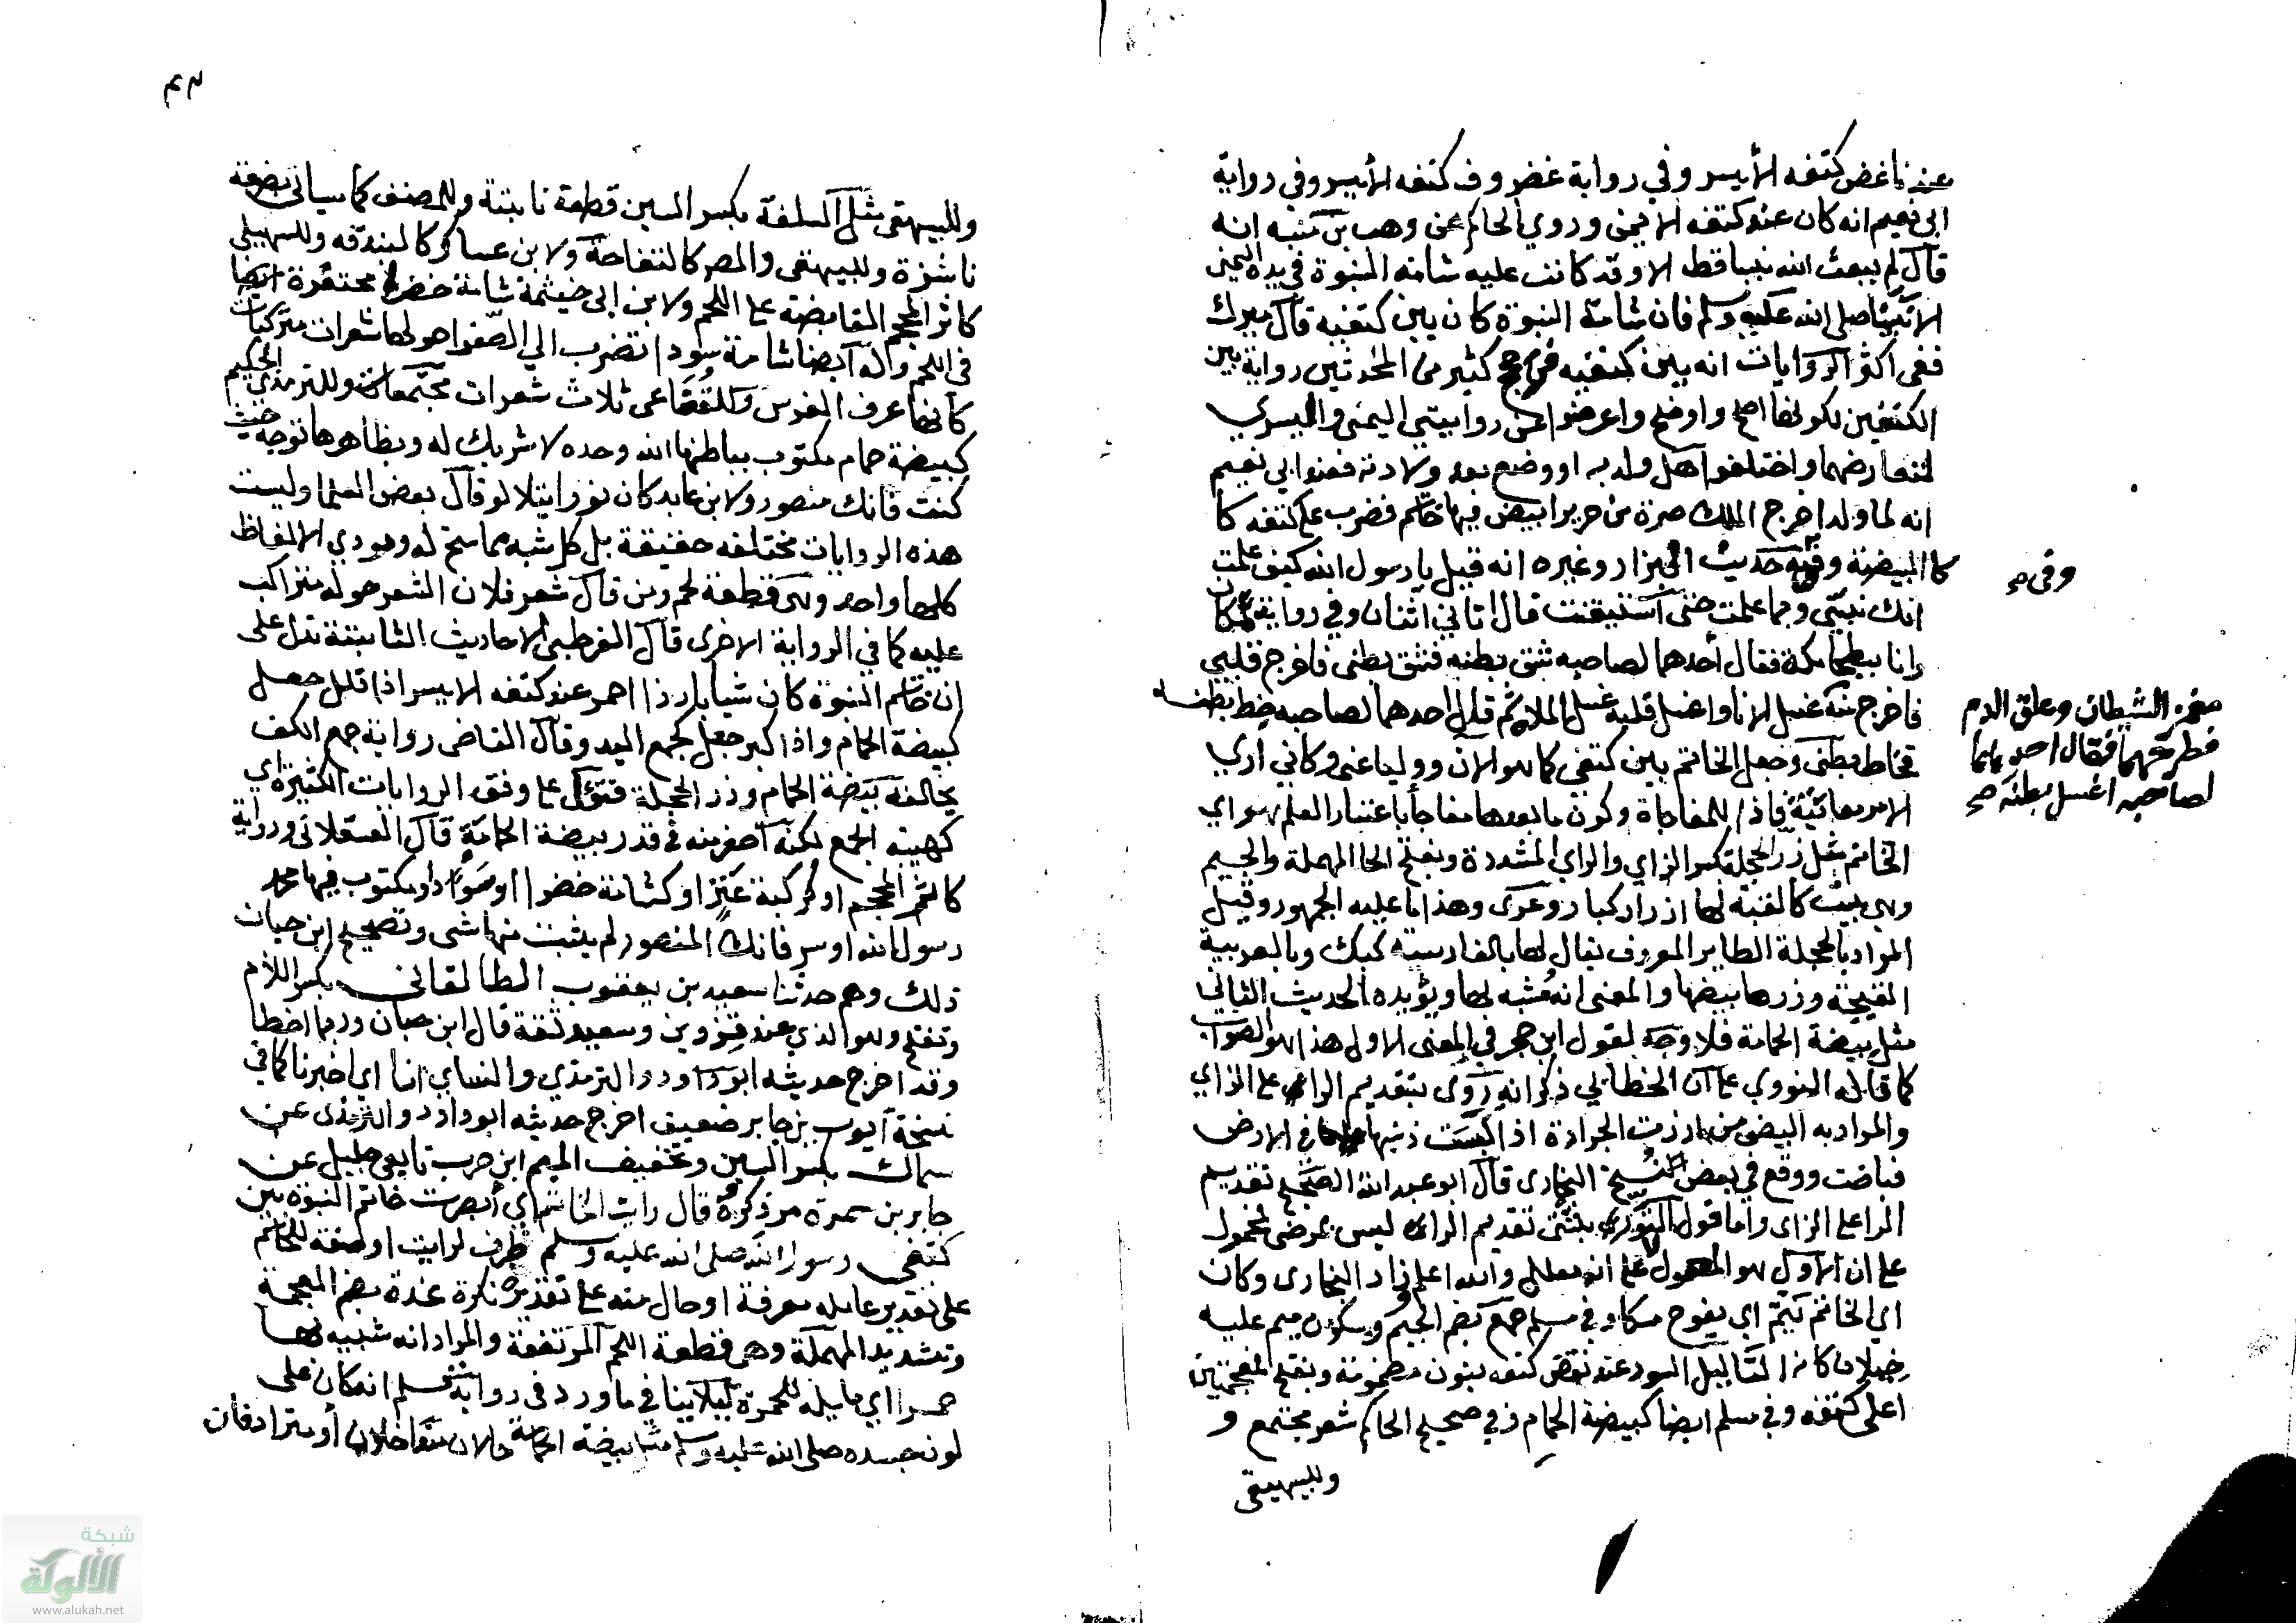 عند ناغض كتفه الأيسر وفي رواية غضروف كتفه الأيسر وفي رواية
ابي نعيم انه كان عند كتفه الايمن وروي الحاكم عن وهب بن منبه انه
قال لم يبعث الله نبيا قط الا وقد كانت عليه شامة النبوة في يده اليمنى
الا نبينا صلى الله عليه وسلم فان شامة النبوة كان بين كتفيه قال ميرك
ففي اكثر الروايات انه بين كتفيه فرجح كثير من المحدثين رواية بين
الكتفين لكونها اصح واوضح واعرضوا عن روايتي اليمنى واليسرى
لتعارضهما واختلفوا هل ولد به او وضع بعد ولادته فعند ابي نعيم
انه لما ولد اخرج الملك صرة من حرير ابيض فيها خاتم فضرب على كتفه كا
كالبيضة وفيه حديث البزار وغيره انه قيل يا رسول الله كيف علمت
وفي صح
انك نبي وبما علمت حتى استيقنت قال اتاني اثنان وفي رواية ملكان
وانا ببطحا مكة فقال أحدهما لصاحبه شق بطنه فشق بطني فاخرج قلبي
فاخرج منه غسل الانا واغسل قلبه غسل الملا ثم قال احدهما لصاحبه خط بطنه
مغمز الشيطان وعلق الدم
فطرحهما فقال احدهما
لصاحبه اغسل بطنه صح
فخاط بطني وجعل الخاتم بين كتفي كما هو الان ووليا عني وكاني اري
الامر معاينة فاذا للمفاجاة وكون ما بعدها مفاجأ باعتبار العلم هو اي
الخاتم مثل زر الحجلة بكسر الزاي والراي المشددة وبفتح الحا المهملة والجيم
وهي بيت كالقبة لها ازرار كبار وعرى وهذا ما عليه الجمهور وقيل
المراد بالحجلة الطاير المعروف يقال لها بالفارسية كبك وبالعربية
القبجة وزرها بيضها والمعنى انه مشبه لها ويؤيده الحديث الثاني
مثل بيضة الحمامة فلا وجه لقول ابن حجر في المعنى الاول هذا هو الصواب
كما قاله النووي على أن الخطابي ذكر انه روى بتقديم الراء على الزاي
والمراد به البيض من ارزت الجرادة اذا كبست ذنبها في الارض
فباضت ووقع في بعض نسخ البخارى قال ابو عبد الله الصحيح تقديم
الرا على الزاى واما قول بتقديم الزاى ليس بمرضى فمحمول
على ان الاول هو المعول على انه معلل والله اعلم زاد البخارى وكان
اي الخاتم يتم اي يفوح مسكا وفي مسلم جمع بضم الجيم وسكون ميم عليه
خيلان كانها الثآليل السود عند نغض كتفه بنون مضمومة وبفتح المعجمتين
اعلى كتفه وفي مسلم ايضا كبيضة الحمام وفي صحيح الحاكم شعر مجتمع و
وللبيهقى
وللبيهقى مثل السلعة بكسر السين قطعة نابتة وللمصنف كما سياتي بضعة
ناشزة وللبيهقى والمصر كالتفاحة ولابن عساكر كالبندقة وللسهيلي
كاثر المحجم القابضة على اللحم ولابن ابي خيثمة شامة خضرا محتفرة
في اللحم وله ايضا شامة سودا تضرب الي الصفرا حولها شعرات متركبات
كأنها عرف الفرس وللقضاعي ثلاث شعرات مجتمعات وللترمذي الحكيم
كبيضة حمام مكتوب بباطنها الله وحده لا شريك له وبظاهرها توجه حيث
كنت فانك منصور ولابن عايد كان نورا يتلالو قال بعض العلما وليست
هذه الروايات مختلفة حقيقة بل كل شبه بما سنح له ومودي الالفاظ
كلها واحد وهي قطعة لحم ومن قال شعر فلان الشعر حوله متراكب
عليه كما في الرواية الاخرى قال القرطبى الاحاديث الثابتة تدل على
ان خاتم النبوة كان شيا بارزا احمر عند كتفه الايسر اذا قلل جعل
كبيضة الحمام واذا كبر جعل كجمع اليد وقال القاضى رواية جمع الكف
يخالفه بيضة الحمام وزر الحجلة فتؤل على وفق الروايات الكثيرة اي
كهيئة الجمع لكنه اصغر منه في قدر بيضة الحمامة قال العسقلانى ورواية
كاثر المحجم او كركبة عنز او كشامة خضرا او سوداء او مكتوب فيها محمد
رسول الله او سر فانك المنصور لم يثبت منها شى وتصحيح ابن حبان
ذلك وهم حدثنا سعيد بن يعقوب الطالقانى بكسر اللام
وتفتح وهو الذي عند قزوين وسعيد ثقة قال ابن حبان وربما اخطا
وقد اخرج حديثه ابو داود والترمذي والنساي انا اي اخبرنا كما في
نسخة ايوب بن جابر ضعيف اخرج حديثه ابو داود والترمذى عن
سماك بكسر السين وتخفيف الميم ابن حرب تابعي جليل عن
جابر بن سمرة مر ذكره قال رايت الخاتم اي أبصرت خاتم النبوة بين
كتفى رسول الله صلى الله عليه وسلم ظرف لرايت او صفة للخاتم
على تقدير عامله معرفة او حال منه على تقديره نكرة غدة بضم المعجمة
وتشديد المهملة وهى قطعة اللحم المرتفعة والمراد انه شبيه بها
حمرا اي مايله للحمرة ليلا ينافي ما ورد فى رواية مسلم انه كان على
لون جسده صلى الله عليه وسلم مثل بيضة الحمامة حالان متداخلان أو مترادفان
شبكة
الألوكة
www.alukah.net